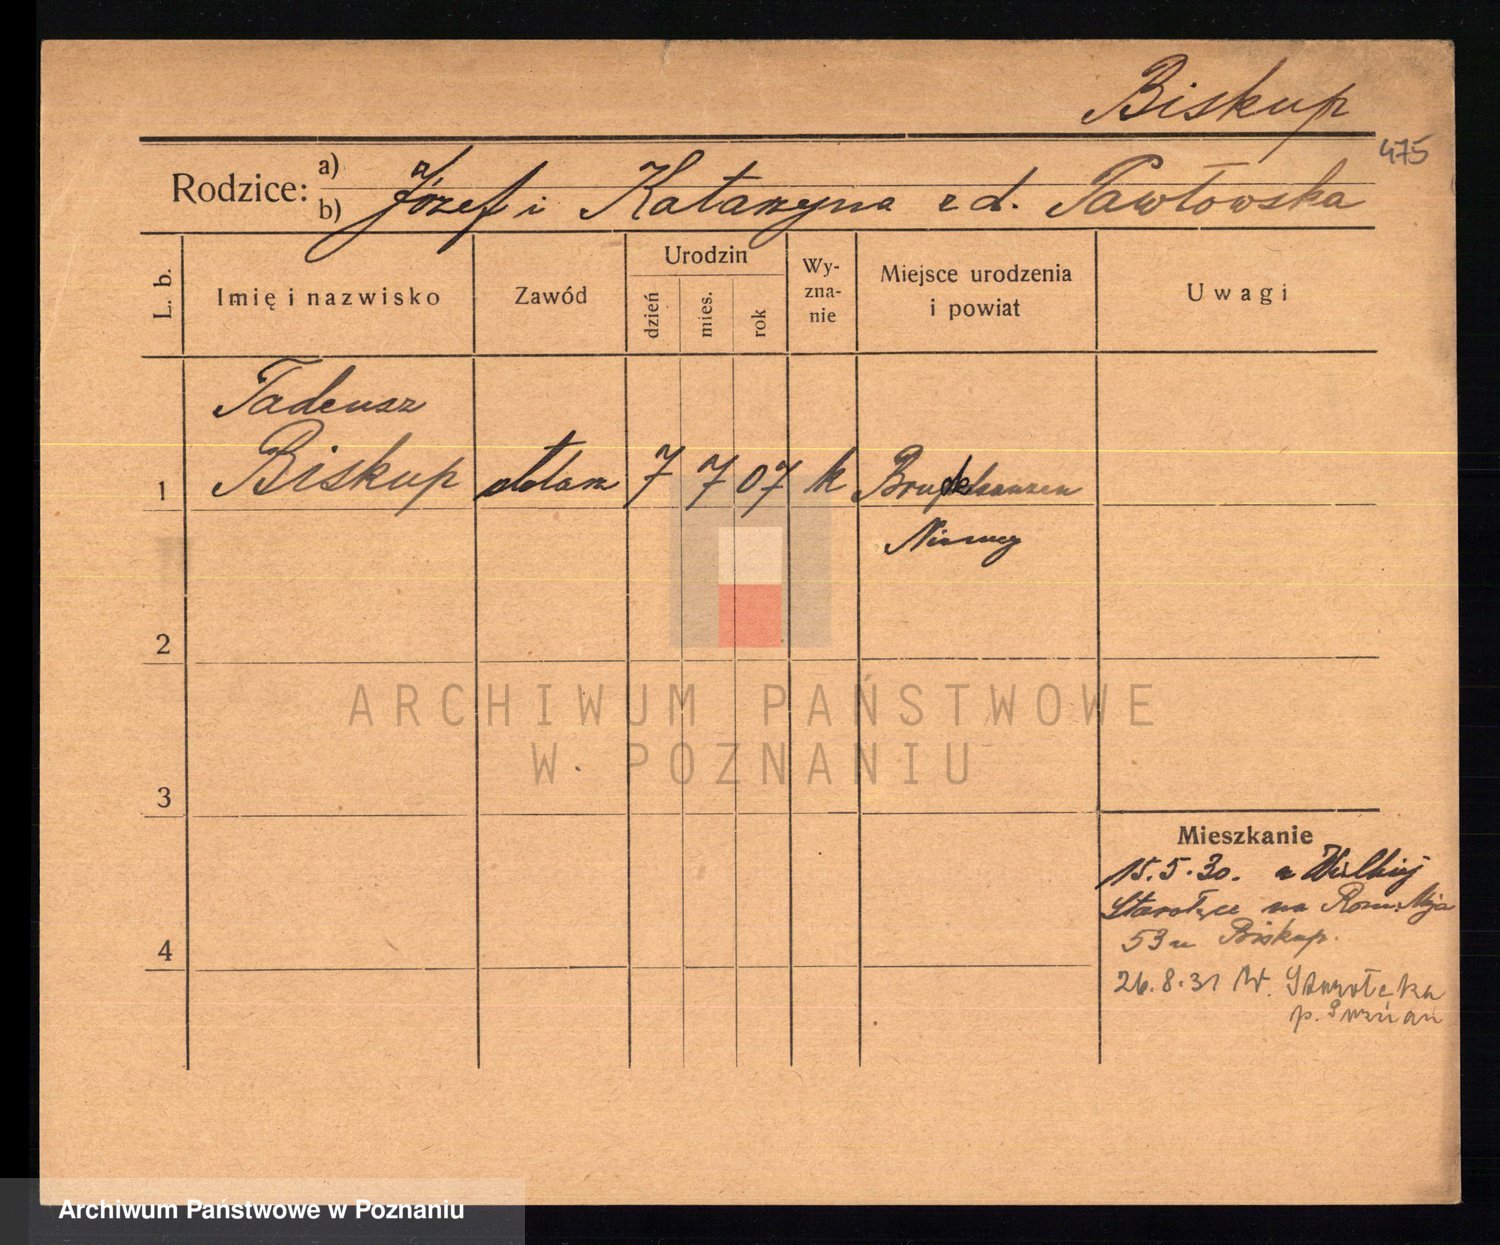 Biskup
475
Rodzice: a) b) Józef i Katarzyna z d. Pawłowska
L. b.
Imię i nazwisko
Zawód
Urodzin
dzień
mies.
rok
Wy-
zna-
nie
Miejsce urodzenia
i powiat
Uwagi
Tadeusz
1 Biskup stolarz 7 7 07 k Bruckhausen
Niemcy
2
ARCHIWUM PAŃSTWOWE
W POZNANIU
3
Mieszkanie
15.5.30. z Wielkiej
Starołęce na
53 u Biskup.
4
26.8.31 W. Starołęka
p. Poznań
Archiwum Państwowe w Poznaniu